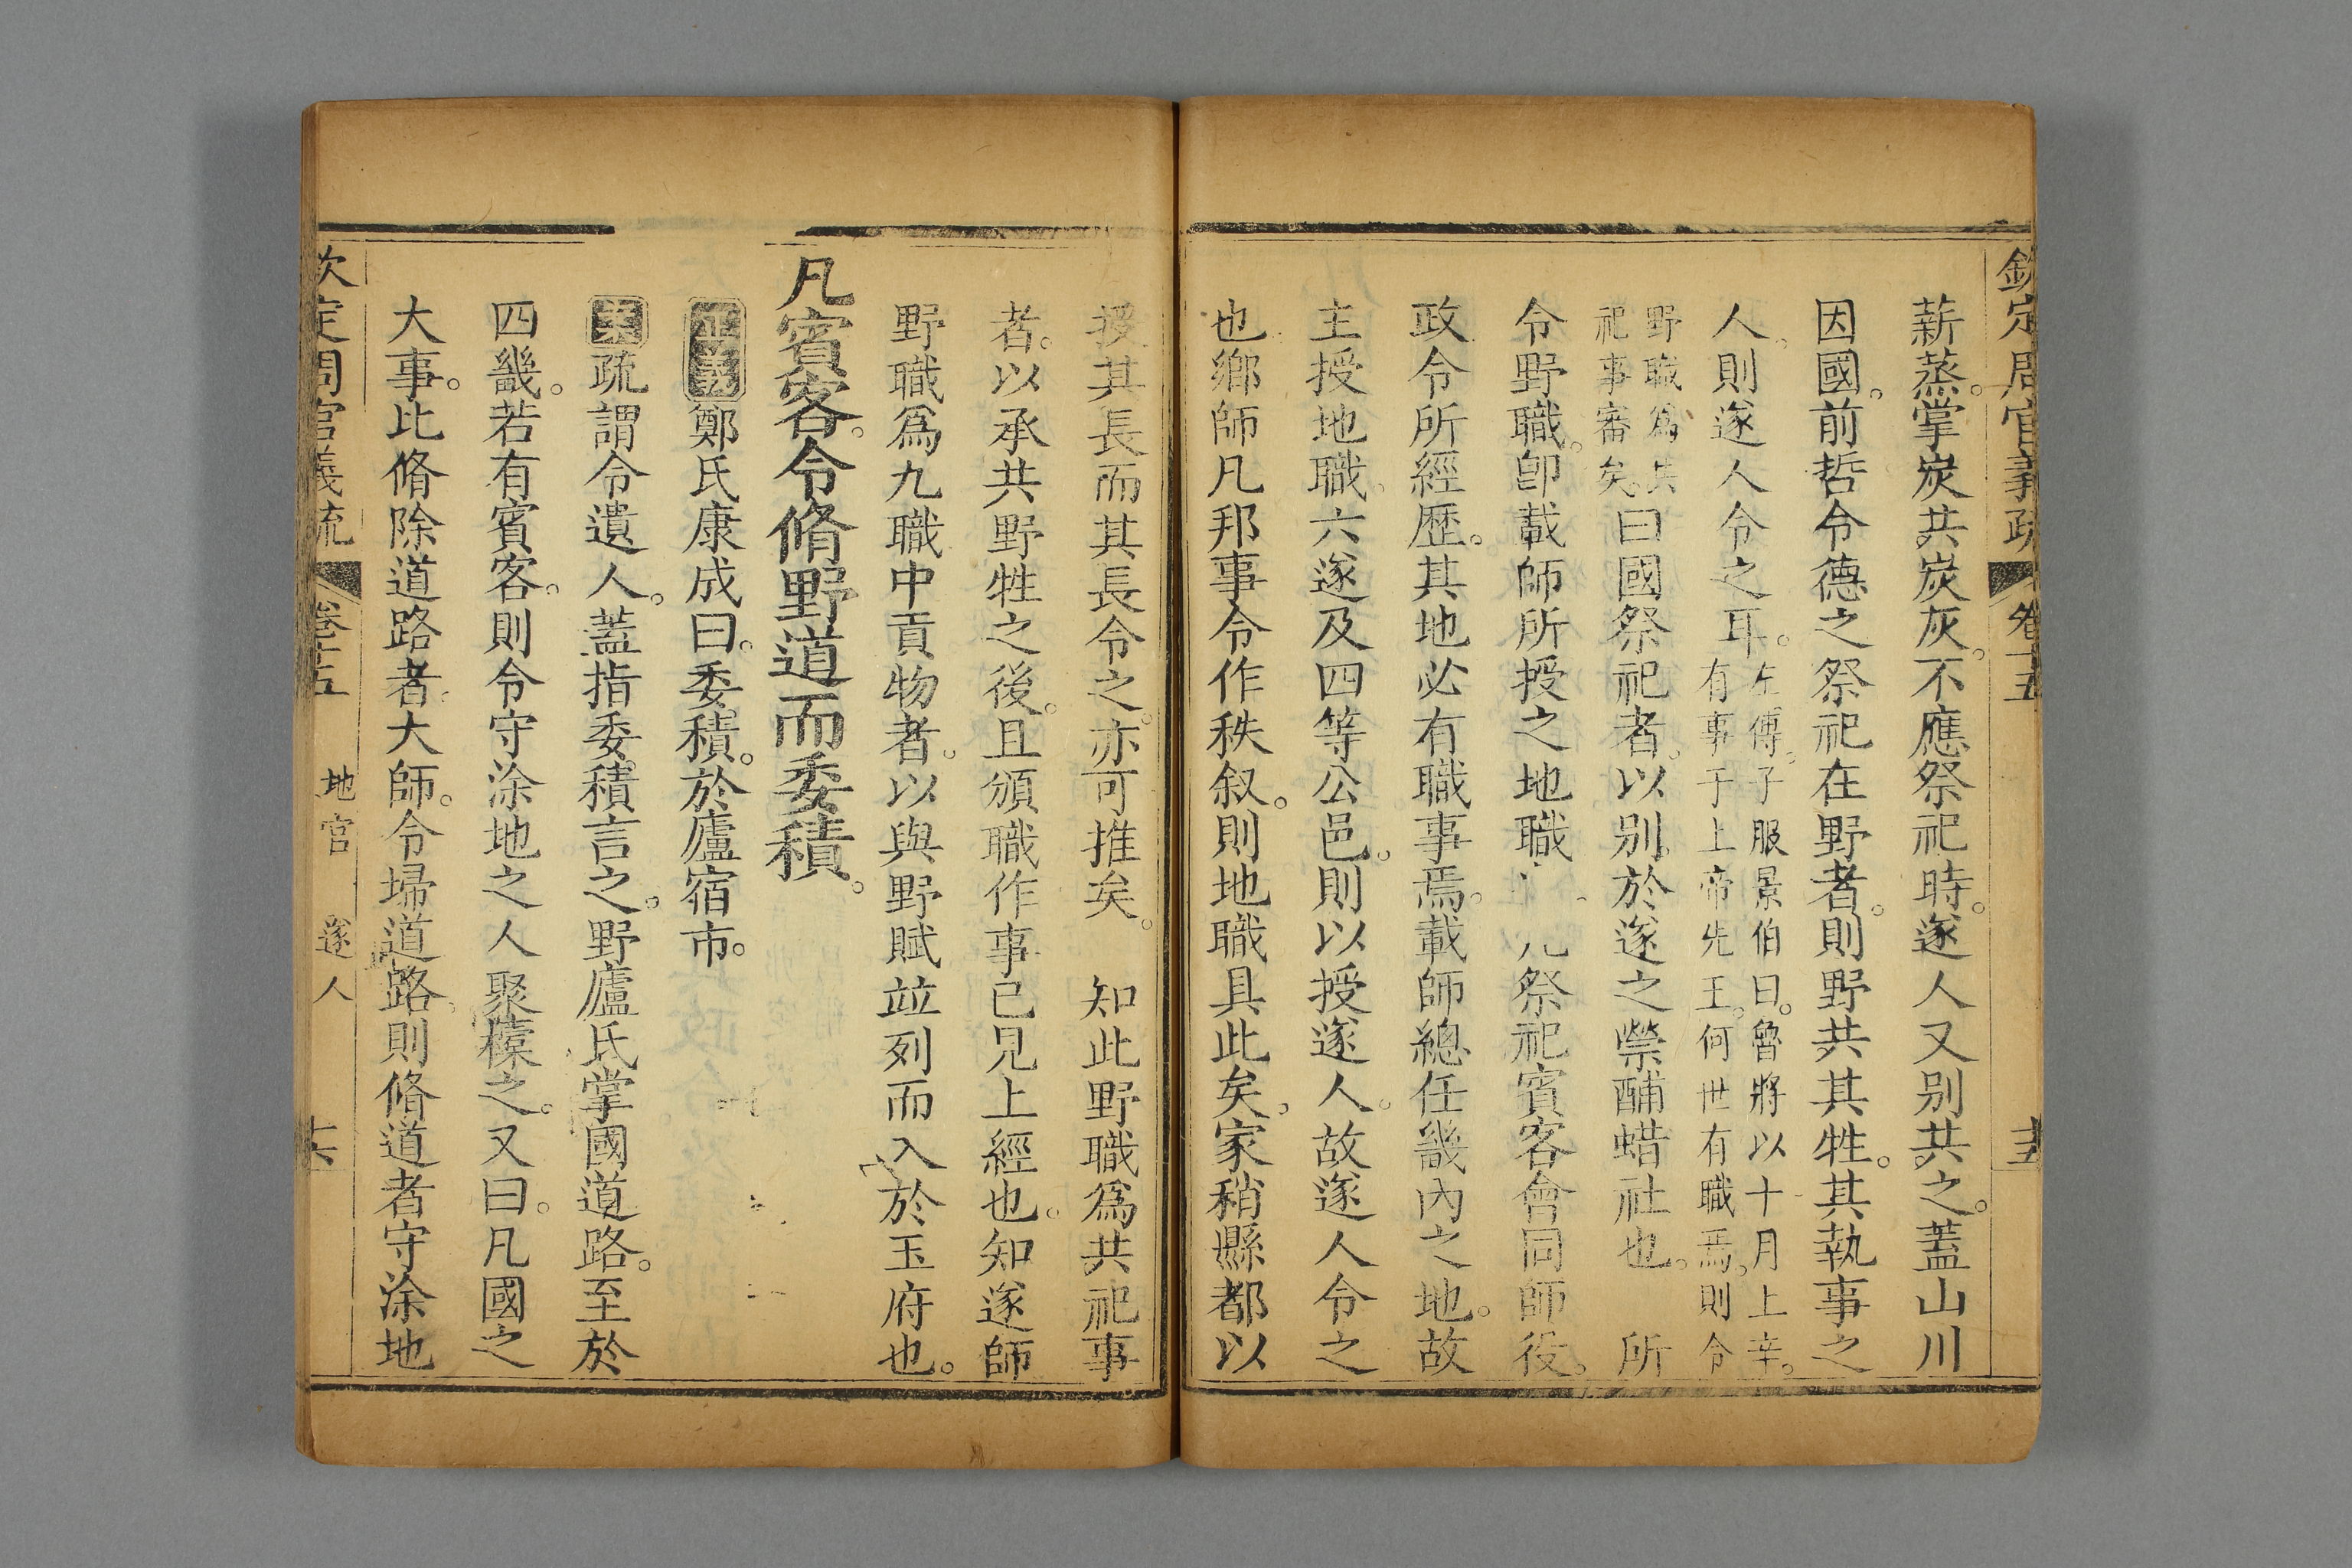 欽定周官義疏 卷十五
十五
薪蒸掌炭共炭灰不應祭祀時遂人又别共之蓋山川
因國前哲令德之祭祀在野者則野共其牲其執事之
人則遂人令之耳左傳子服景伯曰魯將以十月上辛
有事于上帝先王何世有職焉則令
野職爲共
祀事審矣曰國祭祀者以别於遂之禜酺蜡社也 所
令野職卽載師所授之地職 凡祭祀賓客會同師役
政令所經歷其地必有職事焉載師總任畿內之地故
主授地職六遂及四等公邑則以授遂人故遂人令之
也鄉師凡邦事令作秩叙則地職具此矣家稍縣都以
授其長而其長令之亦可推矣 知此野職爲共祀事
者以承共野牲之後且頒職作事已見上經也知遂師
野職爲九職中貢物者以與野賦竝列而入於玉府也
凡賓客令脩野道而委積
正義鄭氏康成曰委積於廬宿市
案疏謂令遺人蓋指委積言之野廬氏掌國道路至於
四畿若有賓客則令守涂地之人聚㯿之又曰凡國之
大事比脩除道路者大師令埽道路則脩道者守涂地
欽定周官義疏 卷十五 地官 遂人
十六